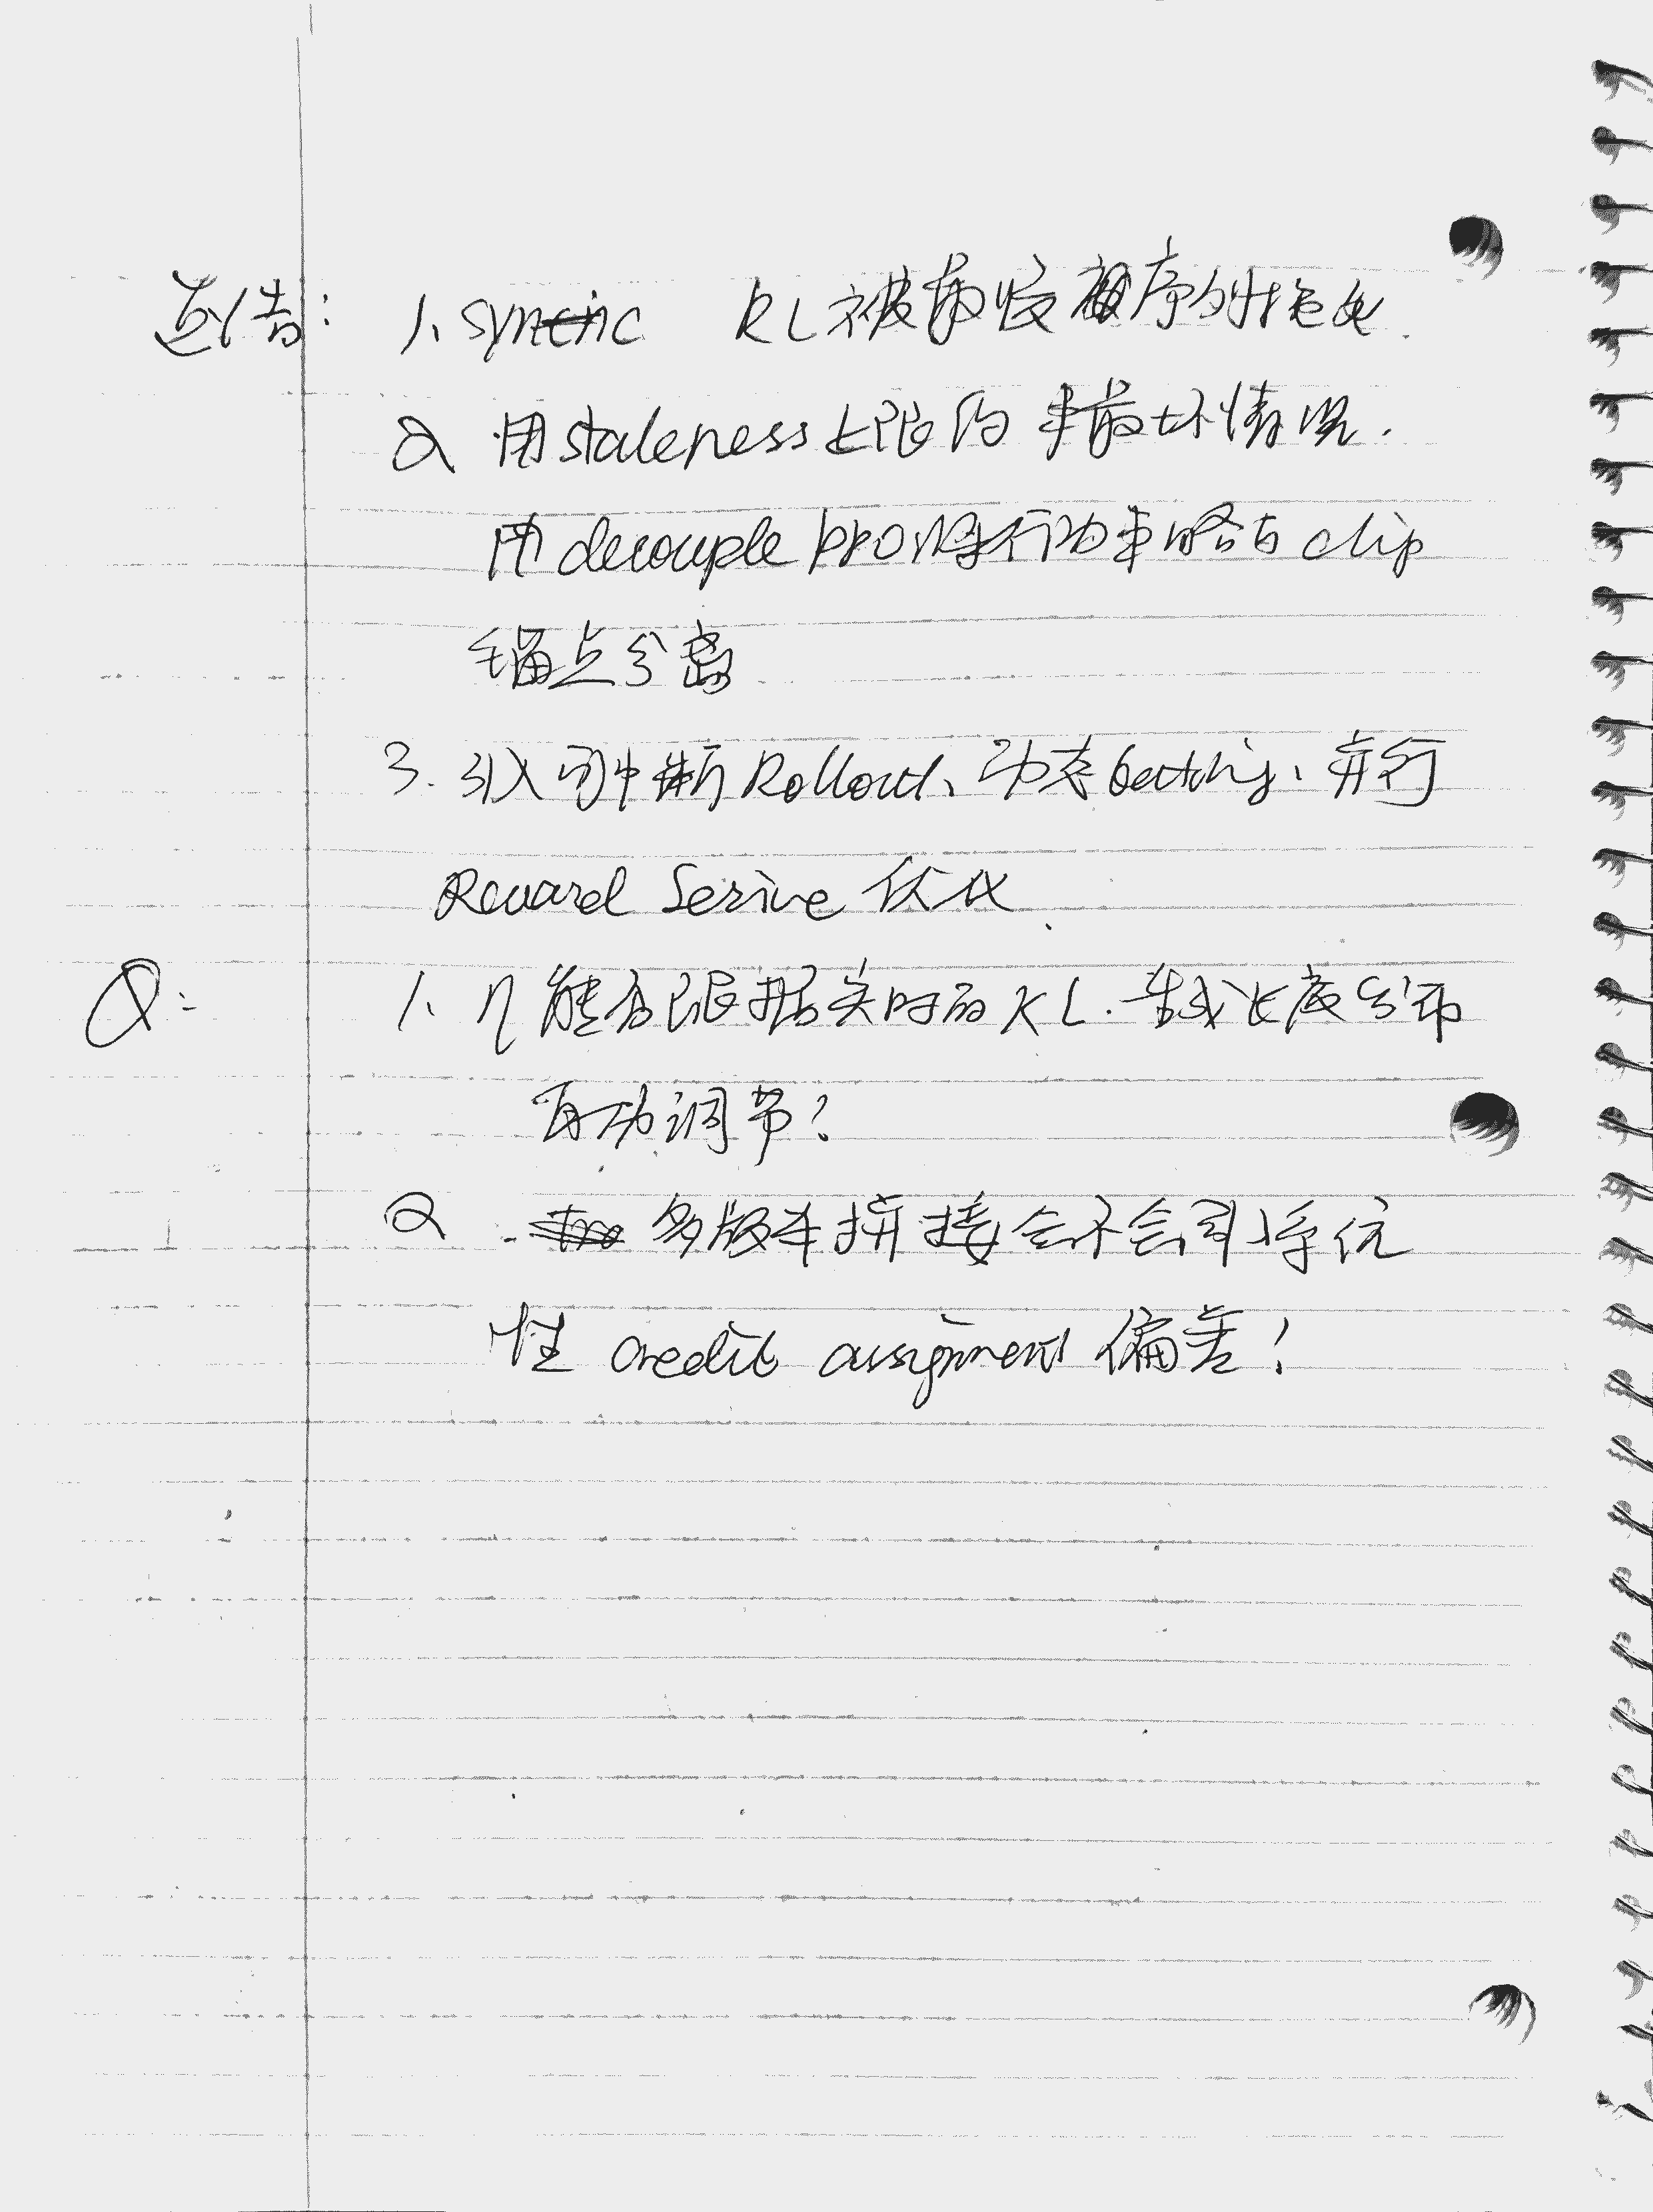 1. sync RL 被最慢序列拖死.
2 用staleness上限约束最坏情况.
用decouple PPO将行为策略与clip
锚点分离
3. 引入可中断Rollout、动态batching、并行
Reward Serive 优化.
Q: 1. η能否根据实时的KL. 或长度分布
自动调节?
2. 多版本拼接会不会引入系统
性 credit assignment 偏差?